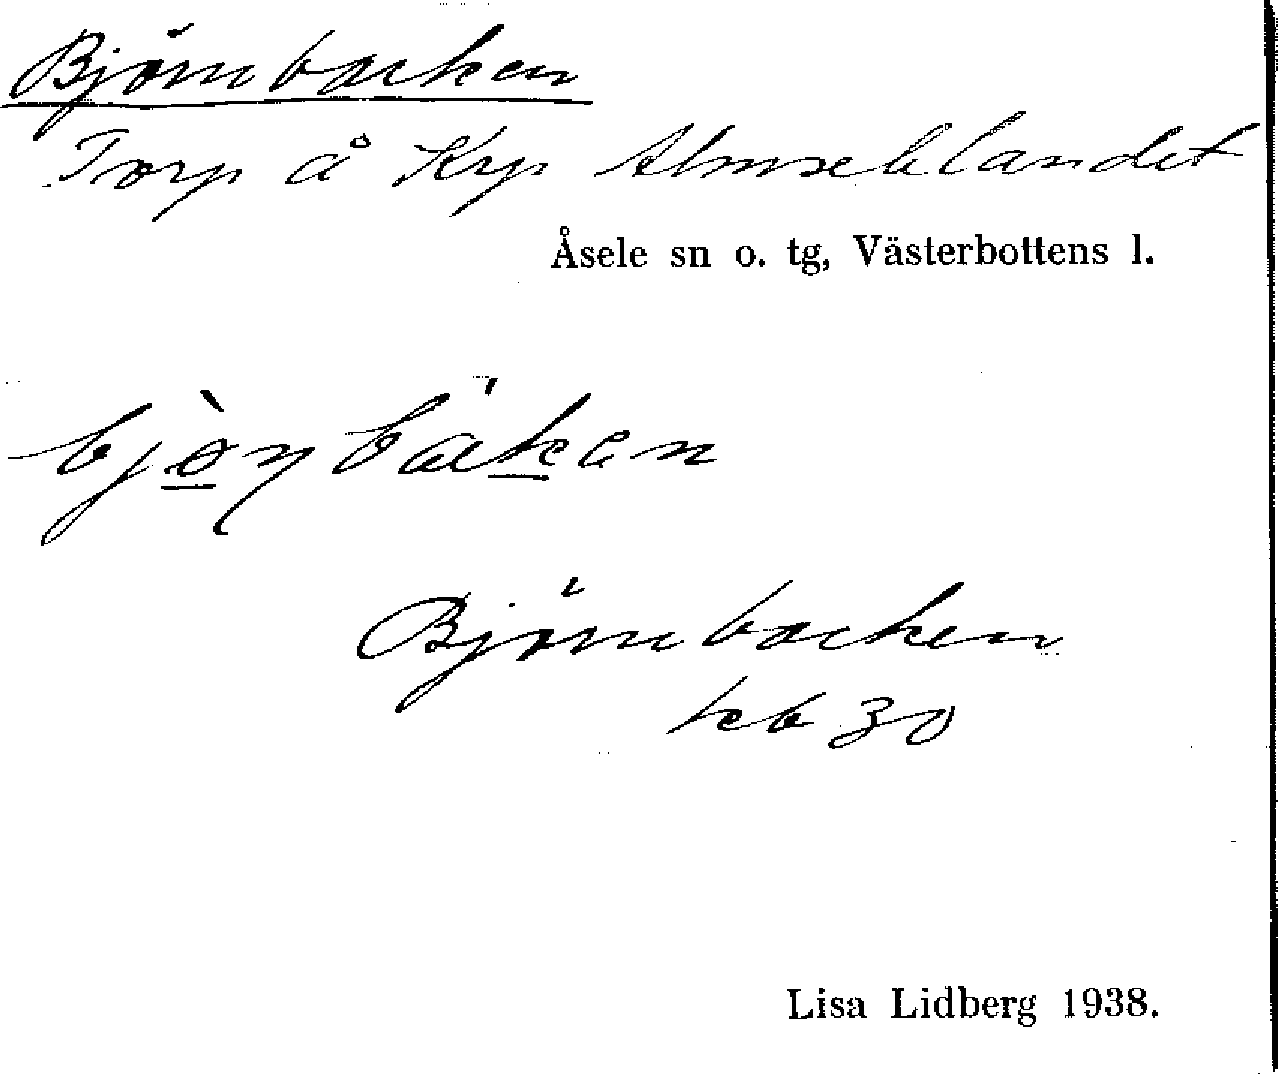 Björnbacken
Torp å Krp Almselelandet
Åsele sn o. tg, Västerbottens l.
bjò̱ŋbák̲en
Björnbacken
kb 30
Lisa Lidberg 1938.